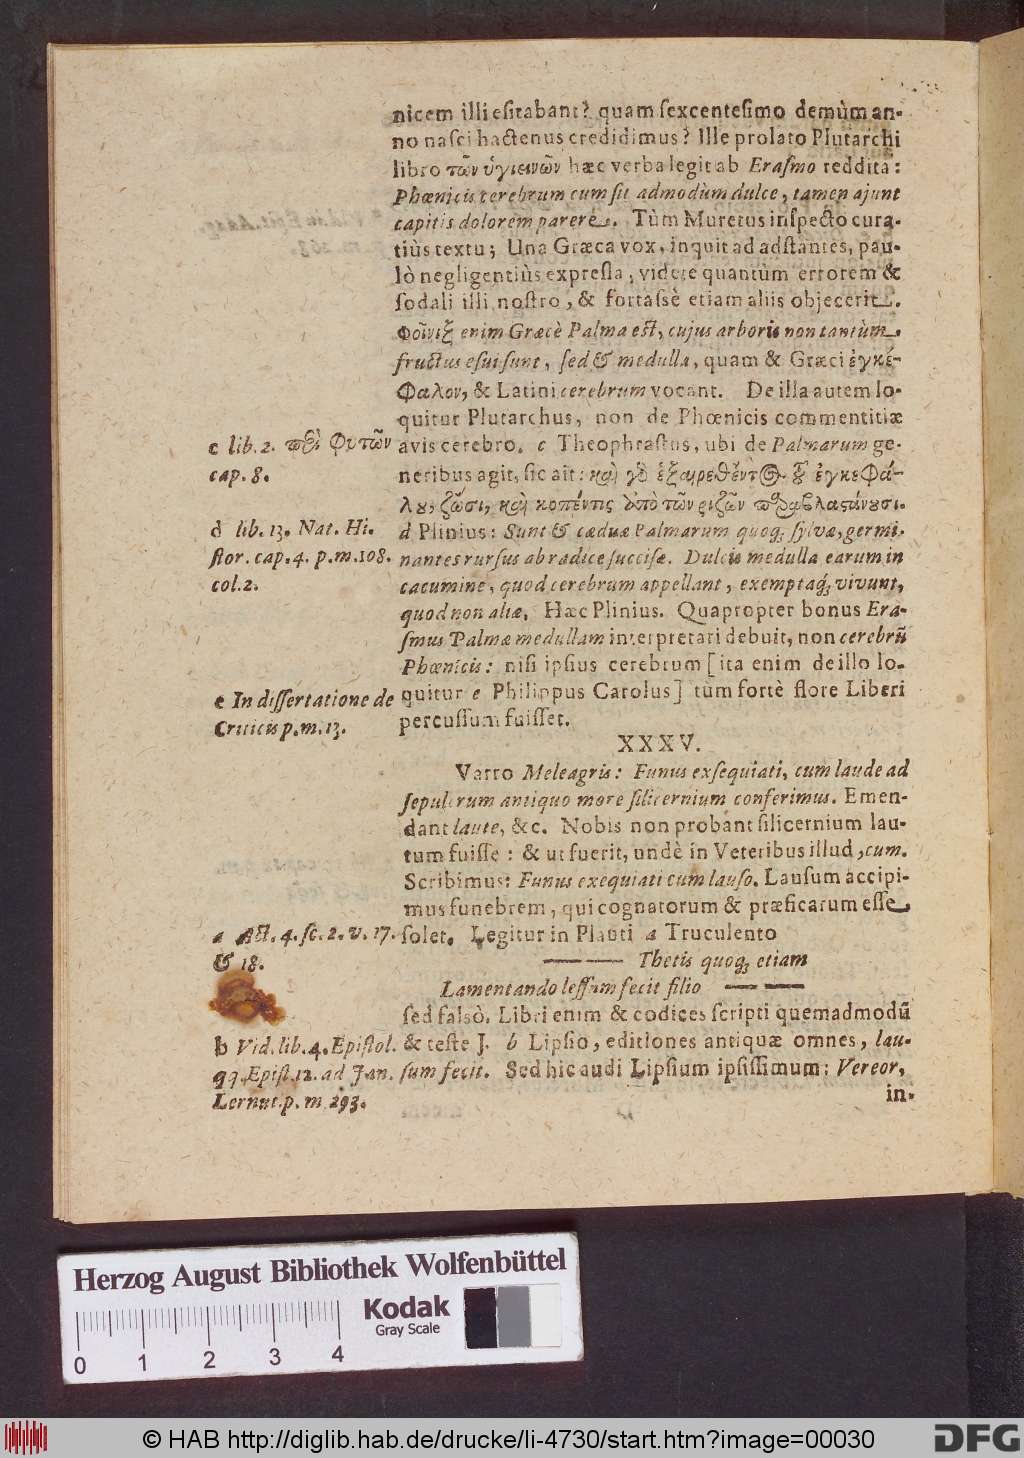 nicem illi esitabant? quam sexcentesimo demùm an-
no nasci hactenus credidimus? Ille prolato Plutarchi
libro τῶν ὑγιεινῶν hæc verba legit ab Erasmo reddita:
Phœnicis cerebrum cum sit admodùm dulce, tamen ajunt
capitis dolorem parere. Tùm Muretus inspecto cura-
tiùs textu; Una Græca vox, inquit ad adstantes, pau-
lò negligentiùs expressa, videte quantùm errorem &
sodali illi nostro, & fortassè etiam aliis objecerit.
Φοῖνιξ enim Græcè Palma est, cujus arboris non tantùm
fructus esui sunt, sed & medulla, quam & Græci ἐγκέ-
φαλον, & Latini cerebrum vocant. De illa autem lo-
quitur Plutarchus, non de Phœnicis commentitiæ
avis cerebro. c Theophrastus, ubi de Palmarum ge-
neribus agit, sic ait: καὶ γὸ ἐξαιρεθέντ@ ȣ͂ ἐγκεφά-
λȣ, ζῶσι, καὶ κοπέντες ἀπὸ τῶν ριζῶν παραβλαςάνȣσι.
d Plinius: Sunt & cæduæ Palmarum quoq; sylvæ, germi-
nantes rursus ab radice succisæ. Dulcis medulla earum in
cacumine, quod cerebrum appellant, exemptaq; vivunt,
quod non aliæ. Hæc Plinius. Quapropter bonus Era-
smus Palmæ medullam interpretari debuit, non cerebrũ
Phœnicis: nisi ipsius cerebrum [ita enim de illo lo-
quitur e Philippus Carolus] tum fortè flore Liberi
percussum fuisset.
c lib. 2. περὶ φυτῶν
cap. 8.
d lib. 13. Nat. Hi-
stor. cap. 4. p. m. 108.
col. 2.
e In dissertatione de
Criticis p. m. 13.
XXXV.
Varro Meleagris: Funus exsequiati, cum laude ad
sepulcrum antiquo more silicernium conferimus. Emen-
dant laute, &c. Nobis non probant silicernium lau-
tum fuisse: & ut fuerit, undè in Veteribus illud, cum.
Scribimus: Funus exequiati cum lauso. Lausum accipi-
mus funebrem, qui cognatorum & præficarum esse
solet. Legitur in Plauti a Truculento
—— —— Thetis quoq; etiam
Lamentando lessum fecit filio —— ——
sed falsò. Libri enim & codices scripti quemadmodũ
& teste J. b Lipsio, editiones antiquæ omnes, lau-
sum fecit. Sed hic audi Lipsium ipsissimum: Vereor,
in-
a Act. 4. sc. 2. v. 17.
& 18.
b Vid. lib. 4. Epistol.
qq. Epist. 12. ad Jan.
Lernut. p. m. 293.
Herzog August Bibliothek Wolfenbüttel
Kodak
Gray Scale
0 1 2 3 4
© HAB http://diglib.hab.de/drucke/li-4730/start.htm?image=00030
DFG